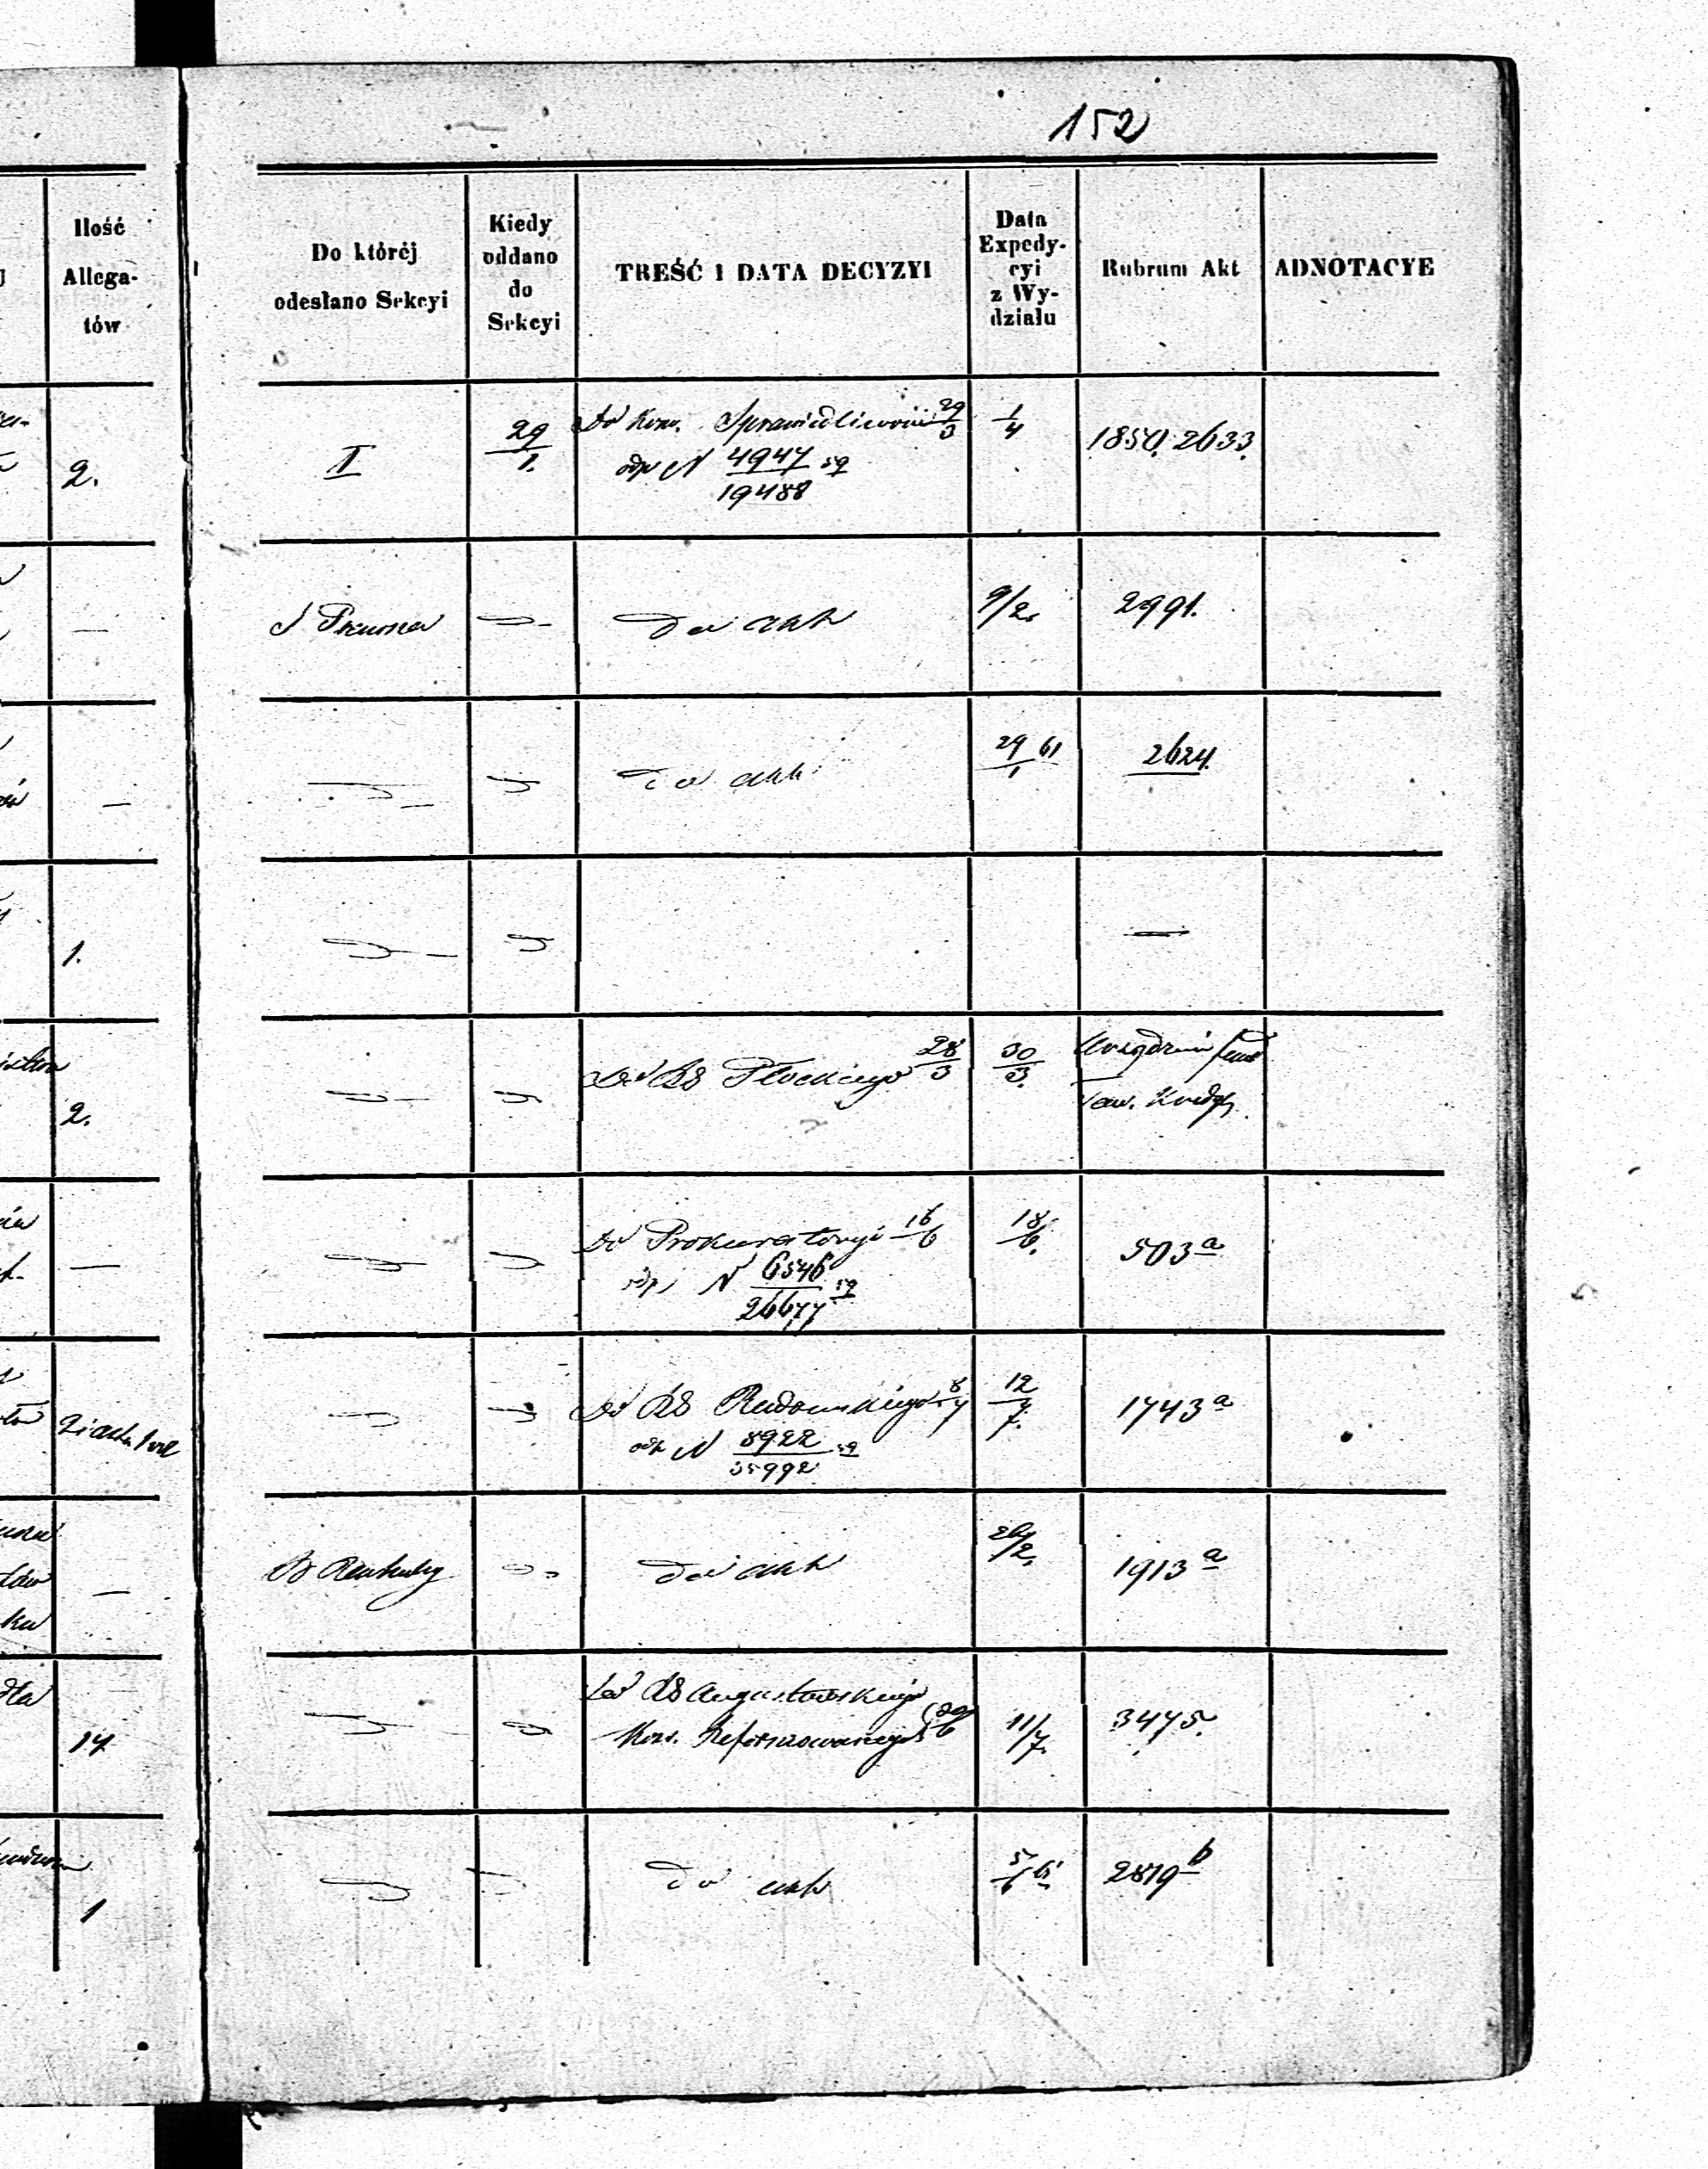 152
Ilość
Allega-
tów
Do któréj
odesłano Sekcyi
Kiedy
oddano
do
Sekcyi
TREŚĆ I DATA DECYZYI
Data
Expedy-
cyi
z Wy-
działu
Rubrum Akt
ADNOTACYE
2.
I
29/1.
Do Kom. Sprawiedliwości 29/3
odp N 4947/19488 59
1/4
1850. 2633.
—
do akt
9/2.
2991.
—
do akt
29/1 61
2624.
1.
—
2.
Do RG Płockiego 28/3
30/3.
Tow. Kredyt.
—
Do Prokuratoryi 16/6
odp N 6546/26677 59
18/6.
503 a
Do RG Radomskiego 8/7
odp N 8922/35992 59
12/7.
1743 a
ka
—
do akt
26/2.
1913 a
dla
14
Do RG Augustowskiego
Kons. Reformowanego 29/6
11/7.
3475.
1
do akt
5/6 61
2819 b